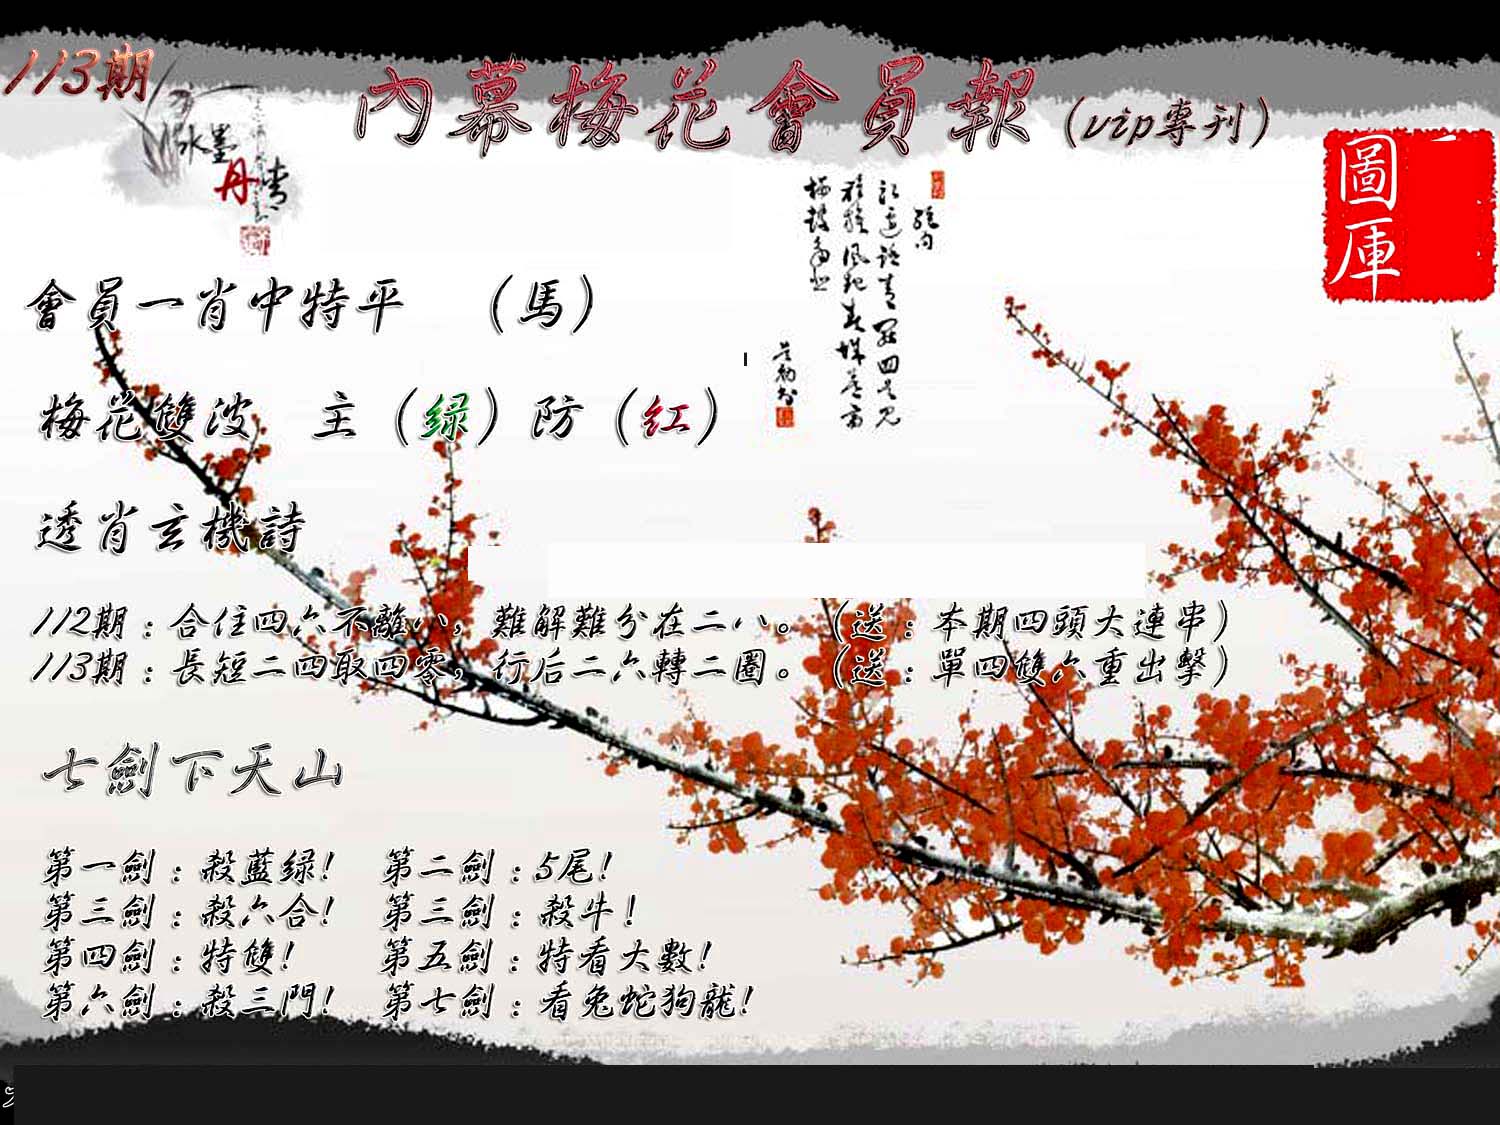 113期
內幕梅花會員報（vip專刊）
水墨
丹青
圖庫
會員一肖中特平　（馬）
梅花雙波　主（绿）防（红）
透肖玄機詩
112期：合住四六不離八，難解難分在二八。（送：本期四頭大連串）
113期：長短二四取四零，行后二六轉二圈。（送：單四雙六重出擊）
七劍下天山
第一劍：殺藍绿！　第二劍：5尾！
第三劍：殺六合！　第三劍：殺牛！
第四劍：特雙！　第五劍：特看大數！
第六劍：殺三門！　第七劍：看兔蛇狗龍！